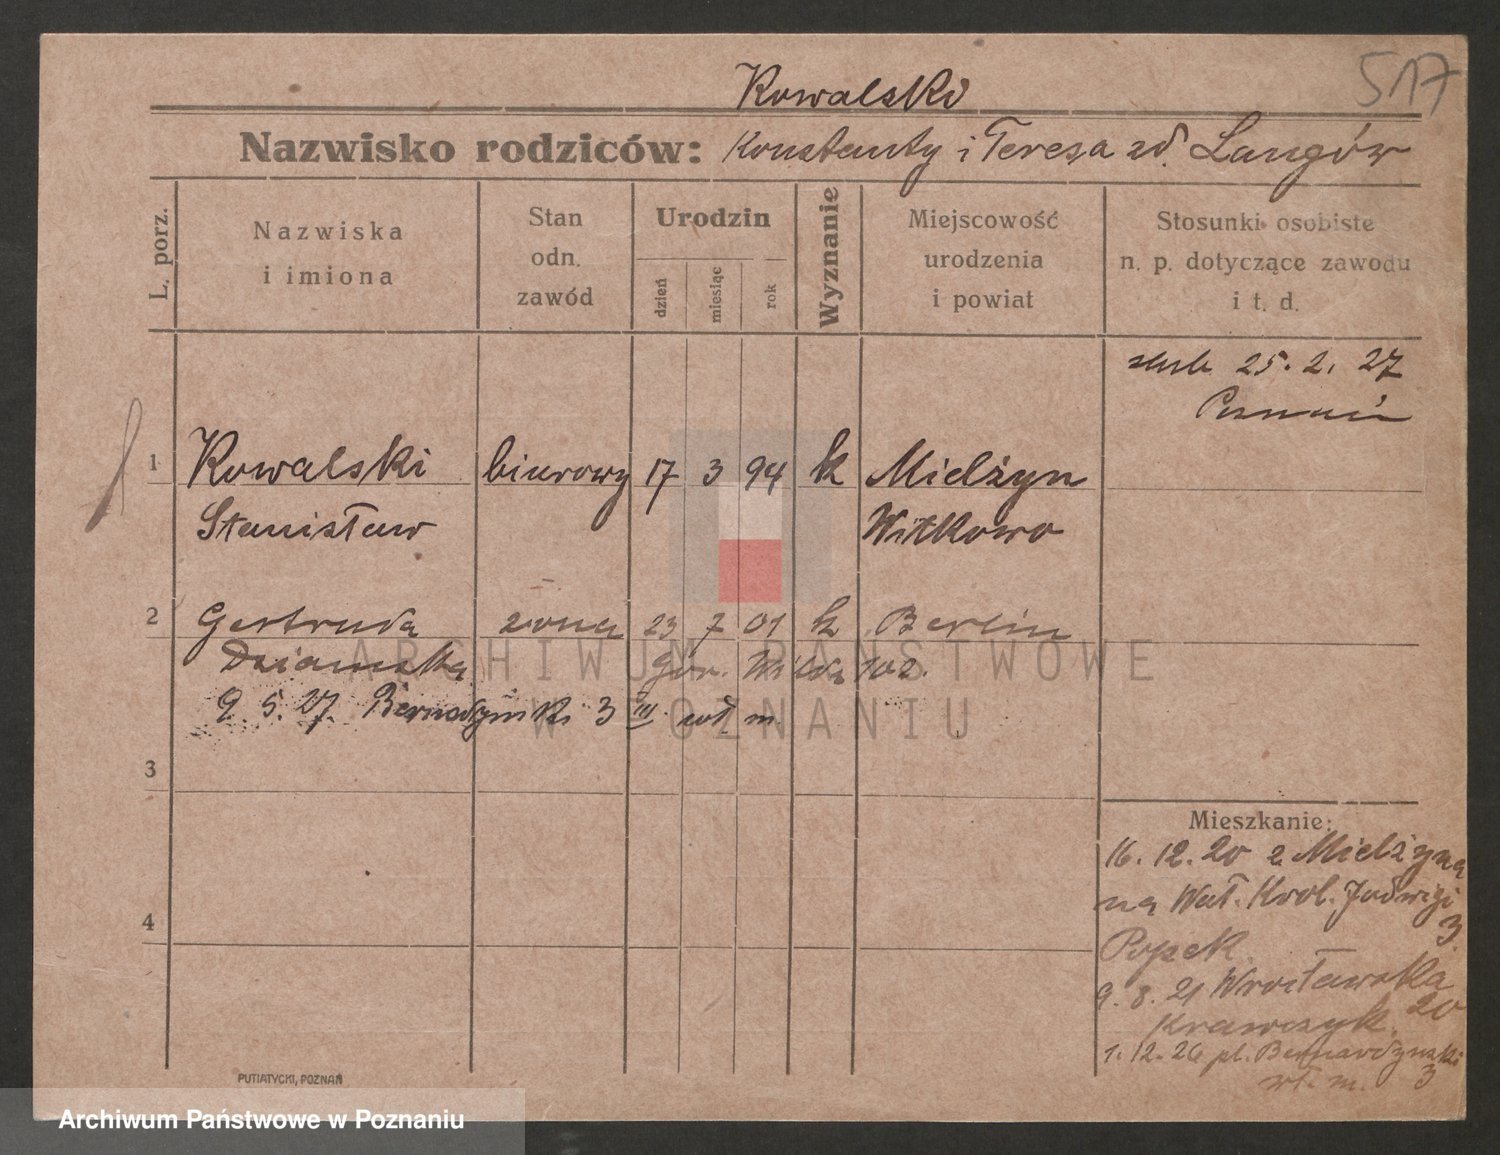 517
Kowalski
Nazwisko rodziców: Konstanty i Teresa zd. Langów
L. porz.
Nazwiska
i imiona
Stan
odn.
zawód
Urodzin
dzień
miesiąc
rok
Wyznanie
Miejscowość
urodzenia
i powiat
Stosunki osobiste
n. p. dotyczące zawodu
i t. d.
ślub 25. 2. 27
Poznań
1 Kowalski biurowy 17 3 94 k Mielżyn
Stanisław Witkowo
2 Gertruda żona 23 7 01 k Berlin
Dziamska Gór. Wilda 102.
9. 5. 27. Bernadyński 3 III wł m.
3
4
Mieszkanie:
16. 12. 20 z Mielżyna
na Wał. Król. Jadwigi
3.
Popek.
9. 8. 21 Wrocławska
20
Krawczyk.
1. 12. 26 pl. Bernardynski
wł. m. 3
PUTIATYCKI, POZNAŃ
ARCHIWUM PAŃSTWOWE
W POZNANIU
Archiwum Państwowe w Poznaniu